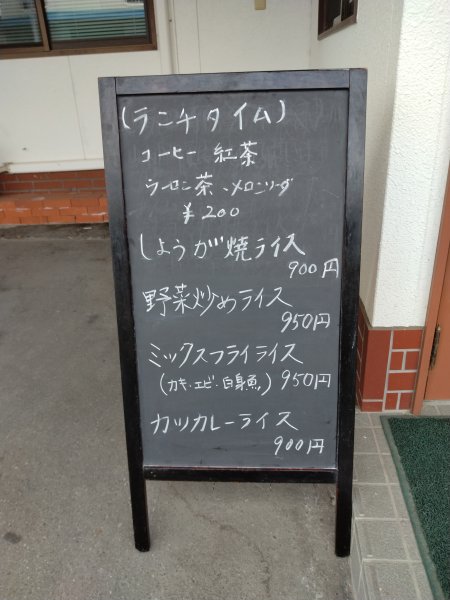 (ランチタイム)
コーヒー 紅茶
ウーロン茶、メロンソーダ
¥200
しょうが焼ライス
900円
野菜炒めライス
950円
ミックスフライライス
(カキ・エビ・白身魚) 950円
カツカレーライス
900円